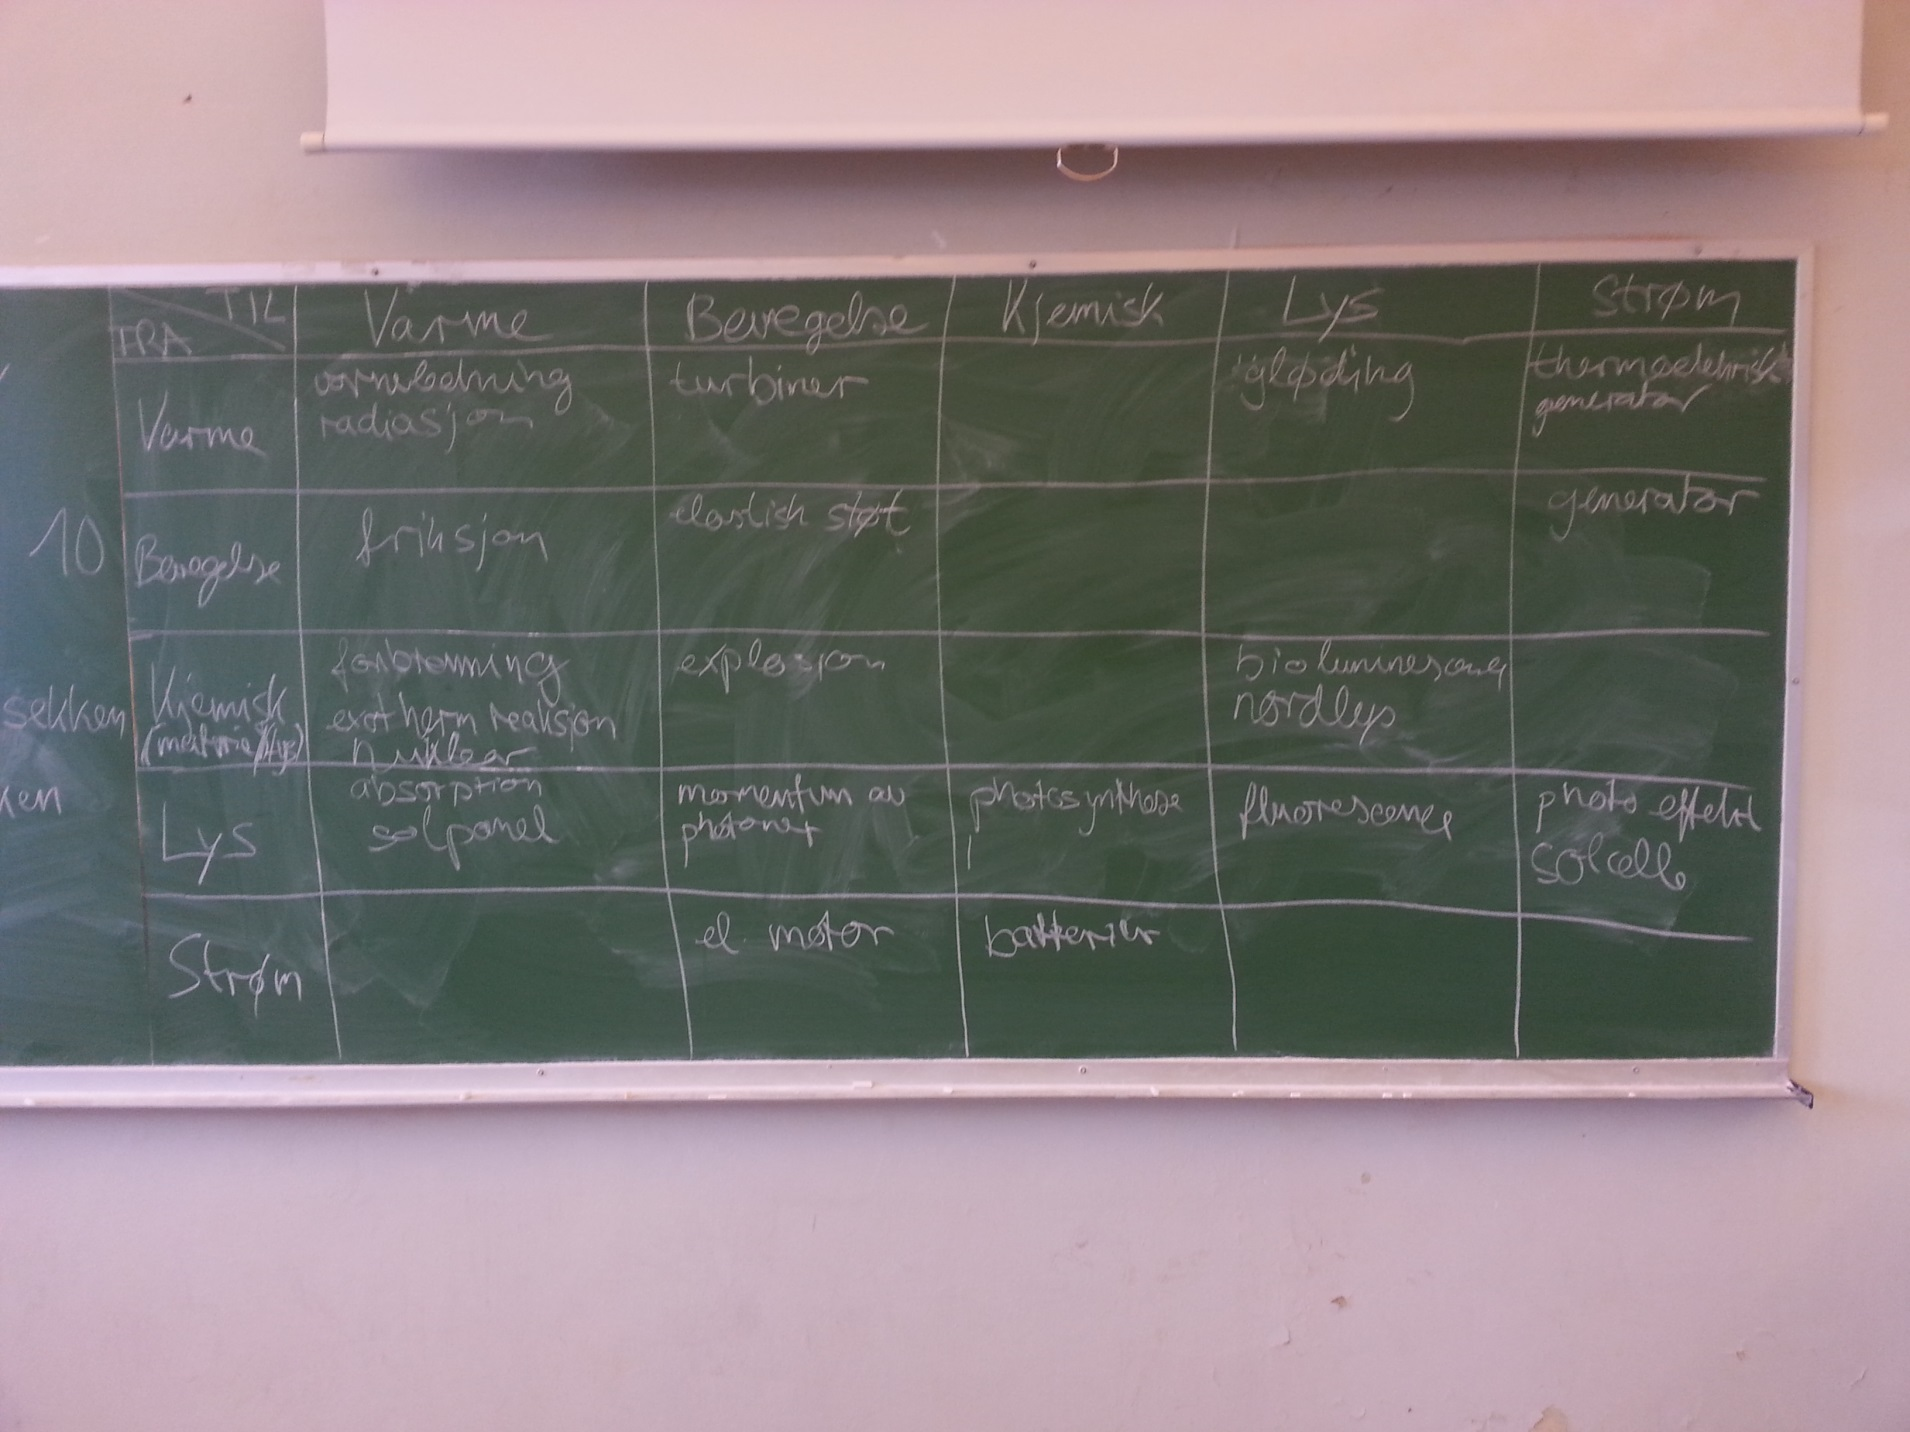 TIL
FRA
Varme
Bevegelse
Kjemisk
Lys
Strøm
Varme
varmeledning
radiasjon
turbiner
gløding
thermoelektrisk
generator
10
Bevegelse
friksjon
elastisk støt
generator
sekken
Kjemisk
forbrenning
exotherm reaksjon
nuklear
explosjon
bioluminescens
nordlys
ken
Lys
absorption
solpanel
momentum av
photoner
photosynthese
fluorescence
photo effekt
solcelle
Strøm
el. motor
batterier